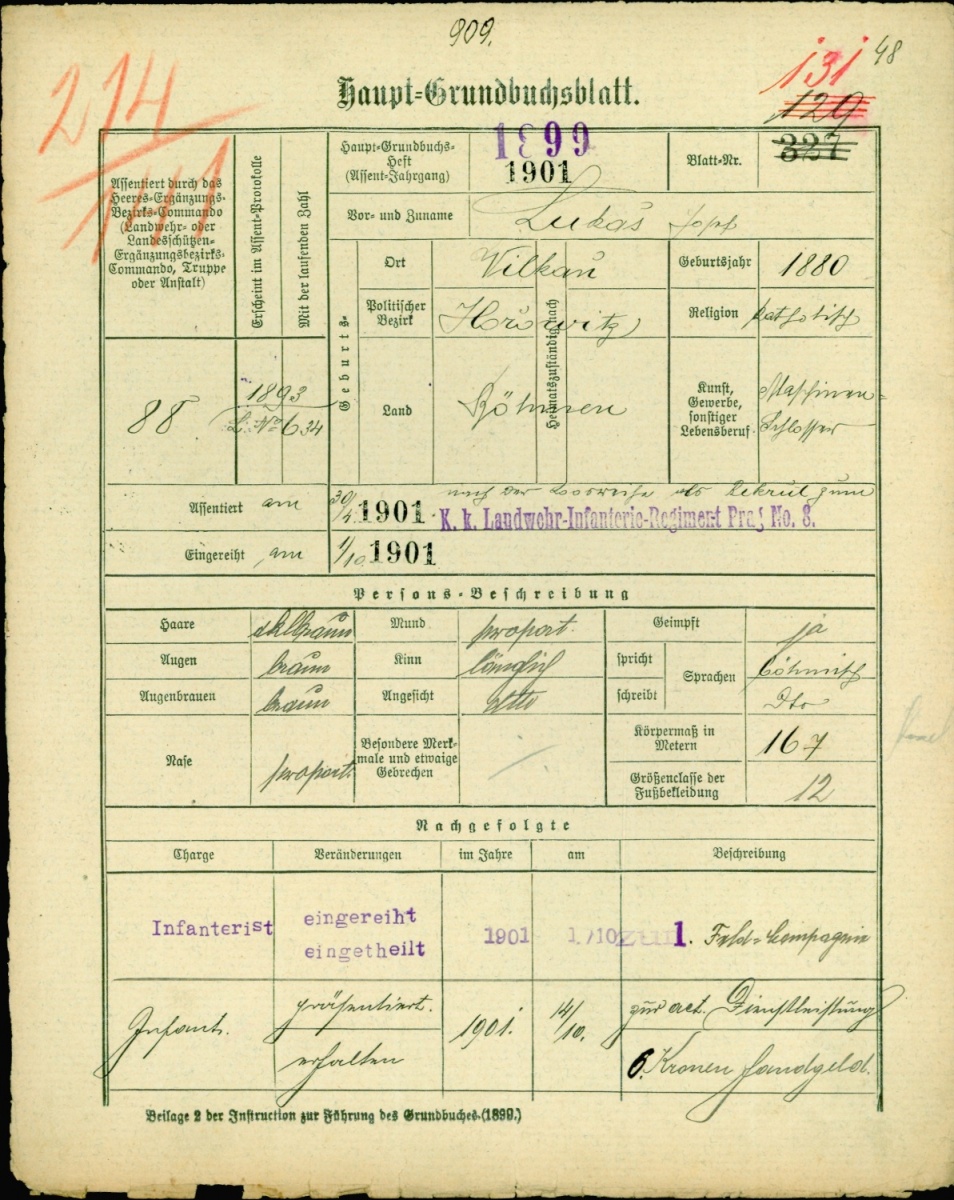 909.
48
131
129
327
214
141
Haupt=Grundbuchsblatt.
Assentiert durch das
Heeres-Ergänzungs-
Bezirks-Commando
(Landwehr- oder
Landesschützen-
Ergänzungsbezirks-
Commando, Truppe
oder Anstalt)
Erscheint im Assent-Protokolle
Mit der laufenden Zahl
Haupt-Grundbuchs-
Heft
(Assent-Jahrgang)
1899
1901
Blatt-Nr.
Vor- und Zuname
Lukáš Josef
Geburts-
Ort
Vilkau
Geburtsjahr
1880
Politischer
Bezirk
Hořowitz
Heimatszuständig nach
Religion
katholisch
Land
Böhmen
Kunst,
Gewerbe,
sonstiger
Lebensberuf
Maschinen=
Schlosser
88
1893
L. No 634
Assentiert am 30/4 1901 nach der Losreihe als Rekrut zum
K. k. Landwehr-Infanterie-Regiment Prag No. 8.
Eingereiht am 1/10 1901
Persons=Beschreibung
Haare dklbraun Mund proport. Geimpft ja
Augen braun Kinn länglich spricht Sprachen böhmisch
Augenbrauen braun Angesicht dtto schreibt Dto
Nase proport. Besondere Merk-
male und etwaige
Gebrechen
Körpermaß in
Metern
167
Größenclasse der
Fußbekleidung
12
Nachgefolgte
Charge Veränderungen im Jahre am Beschreibung
Infanterist eingereiht
eingetheilt 1901 1./10 zur 1. Feld=Compagnie
Infant. präsentiert. 1901. 14/10. zur act. Dienstleistung
erhalten 6 Kronen Handgeld.
Beilage 2 der Instruction zur Führung des Grundbuches (1899.)